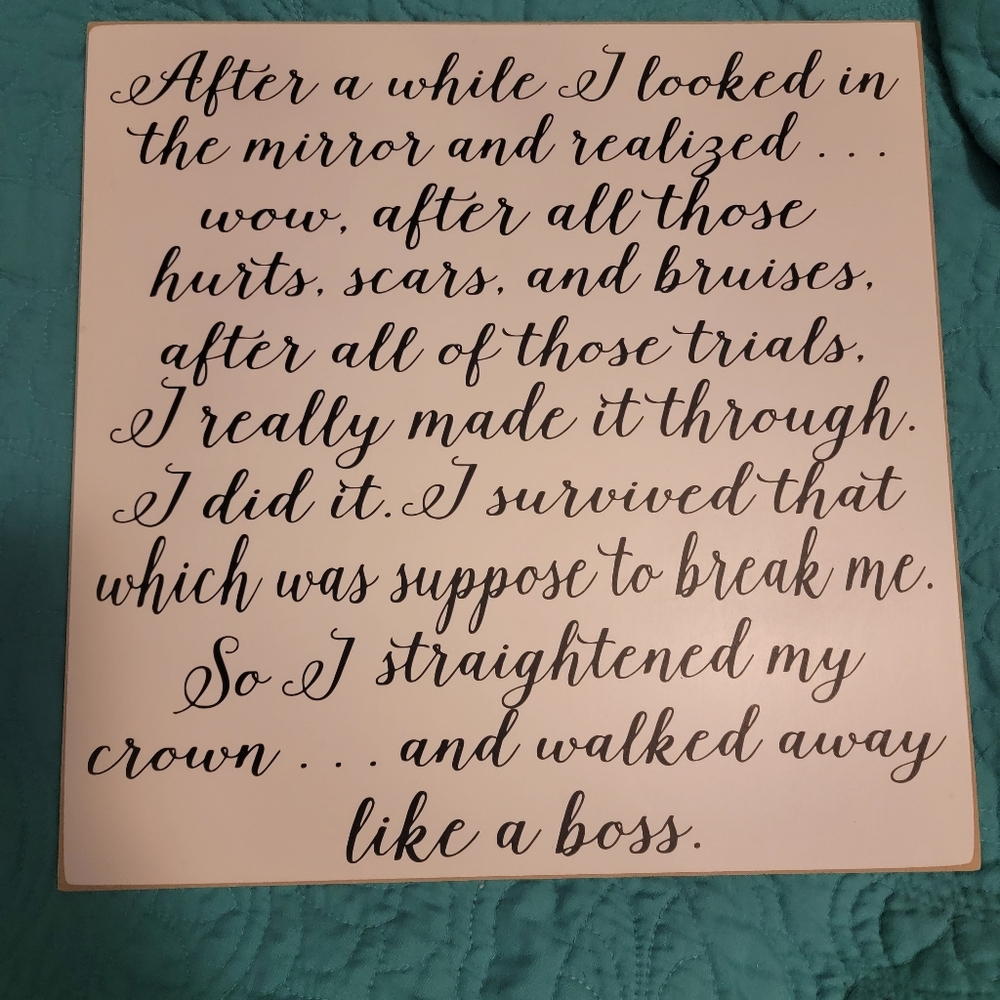 After a while I looked in
the mirror and realized . . .
wow, after all those
hurts, scars, and bruises,
after all of those trials,
I really made it through.
I did it. I survived that
which was suppose to break me.
So I straightened my
crown . . . and walked away
like a boss.